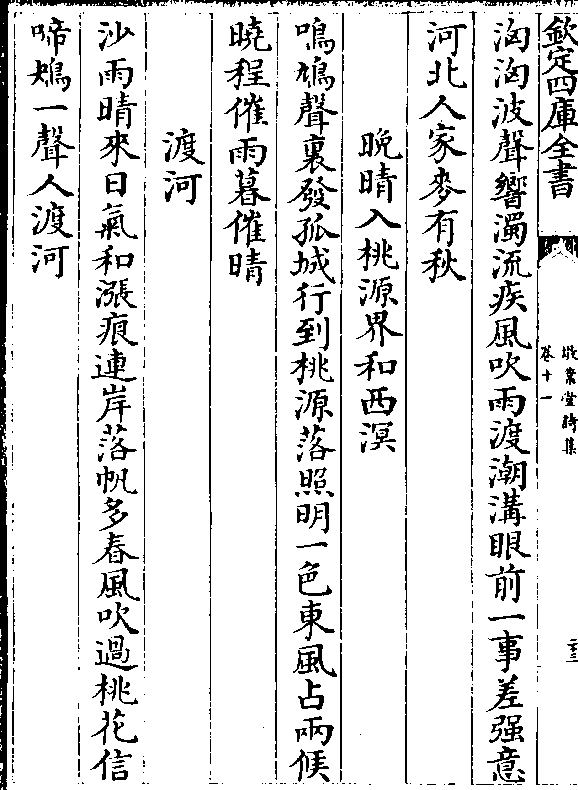 欽定四庫全書
敬業堂詩集
卷十一
洶洶波聲響濁流疾風吹雨渡潮溝眼前一事差强意
河北人家麥有秋
晚晴入桃源界和西溟
鳴鳩聲裏發孤城行到桃源落照明一色東風占兩候
曉程催雨暮催晴
渡河
沙雨晴來日氣和漲痕連岸落帆多春風吹過桃花信
啼鴂一聲人渡河